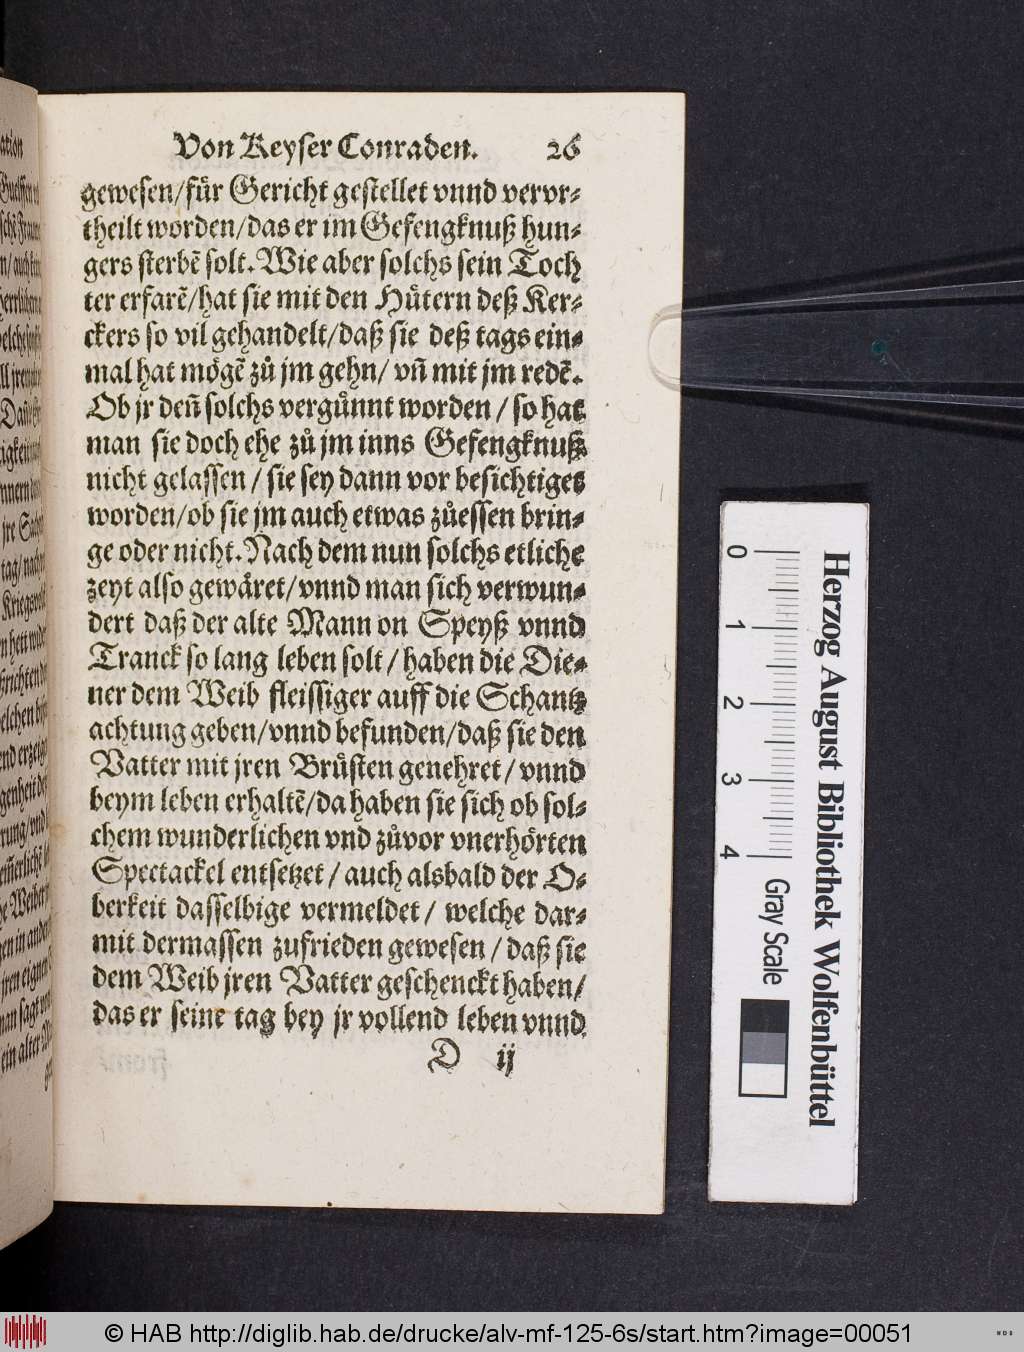 Von Keyser Conraden. 26
gewesen/für Gericht gestellet vnnd vervr-
theilt worden/das er im Gefengknuß hun-
gers sterbẽ solt. Wie aber solchs sein Toch
ter erfarẽ/hat sie mit den Huͤtern deß Ker-
ckers so vil gehandelt/daß sie deß tags ein-
mal hat moͤgẽ zuͦ jm gehn/ vñ mit jm redẽ.
Ob jr deñ solchs verguͤnnt worden / so hat
man sie doch ehe zuͦ jm inns Gefengknuß
nicht gelassen / sie sey dann vor besichtiget
worden/ob sie jm auch etwas zuͦessen brin-
ge oder nicht. Nach dem nun solchs etliche
zeyt also gewaͤret/vnnd man sich verwun-
dert daß der alte Mann on Speyß vnnd
Tranck so lang leben solt / haben die Die-
ner dem Weib fleissiger auff die Schantz
achtung geben/vnnd befunden/daß sie den
Vatter mit jren Bruͤsten genehret / vnnd
beym leben erhaltẽ/da haben sie sich ob sol-
chem wunderlichen vnd zuͦvor vnerhoͤrten
Spectackel entsetzet / auch alsbald der O-
berkeit dasselbige vermeldet / welche dar-
mit dermassen zufrieden gewesen / daß sie
dem Weib jren Vatter geschenckt haben/
das er seine tag bey jr vollend leben vnnd
D ij
Herzog August Bibliothek Wolfenbüttel
0 1 2 3 4 Gray Scale
© HAB http://diglib.hab.de/drucke/alv-mf-125-6s/start.htm?image=00051